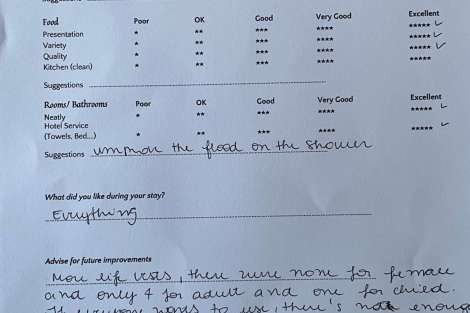 Food Poor OK Good Very Good Excellent
Presentation * ** *** **** ***** ✓
Variety * ** *** **** ***** ✓
Quality * ** *** **** ***** ✓
Kitchen (clean) * ** *** **** *****
Suggestions
Rooms/ Bathrooms Poor OK Good Very Good Excellent
Neatly * ** *** **** ***** ✓
Hotel Service
(Towels, Bed...) * ** *** **** ***** ✓
Suggestions the flood on the shower
What did you like during your stay?
Everything
Advise for future improvements
More life vests, there were none for female
and only 4 for adult and one for child.
to use, there's not enough